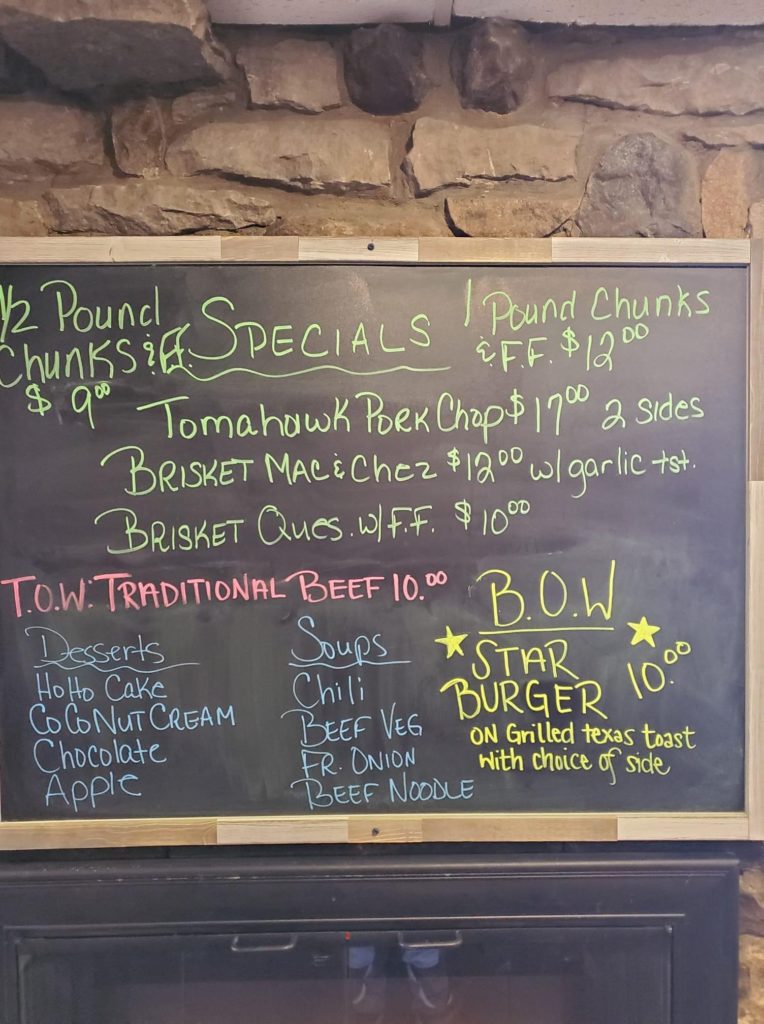 1/2 Pound
Chunks & F.F.
$ 9.00
SPECIALS
1 Pound Chunks
& F.F. $12.00
Tomahawk Pork Chop $17.00 2 sides
BRISKET MAC & Chez $12.00 w/garlic tst.
BRISKET Ques. w/F.F. $10.00
T.O.W: TRADITIONAL BEEF 10.00
Desserts
HoHo Cake
COCONUT CREAM
Chocolate
Apple
Soups
Chili
BEEF VEG
FR. ONION
BEEF NOODLE
B.O.W
STAR
BURGER 10.00
ON Grilled texas toast
with choice of side